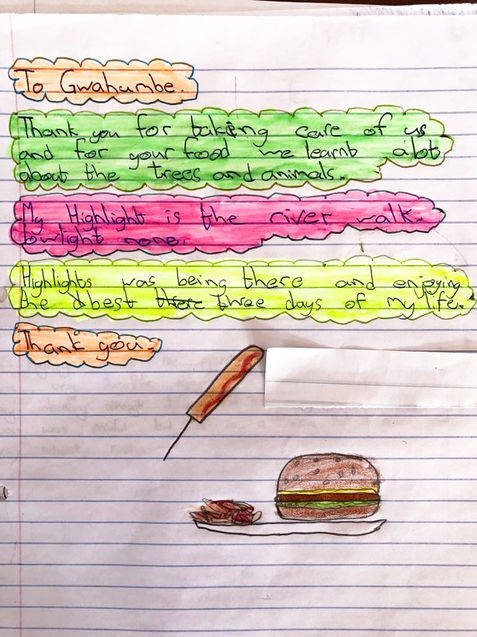 To Gwahumbe.
Thank you for taking care of us
and for your food we learnt alot
about the trees and animals.
My Highlight is the river walk.
Lowlight none.
Highlights was being there and enjoying
the best three days of my life.
Thank you.